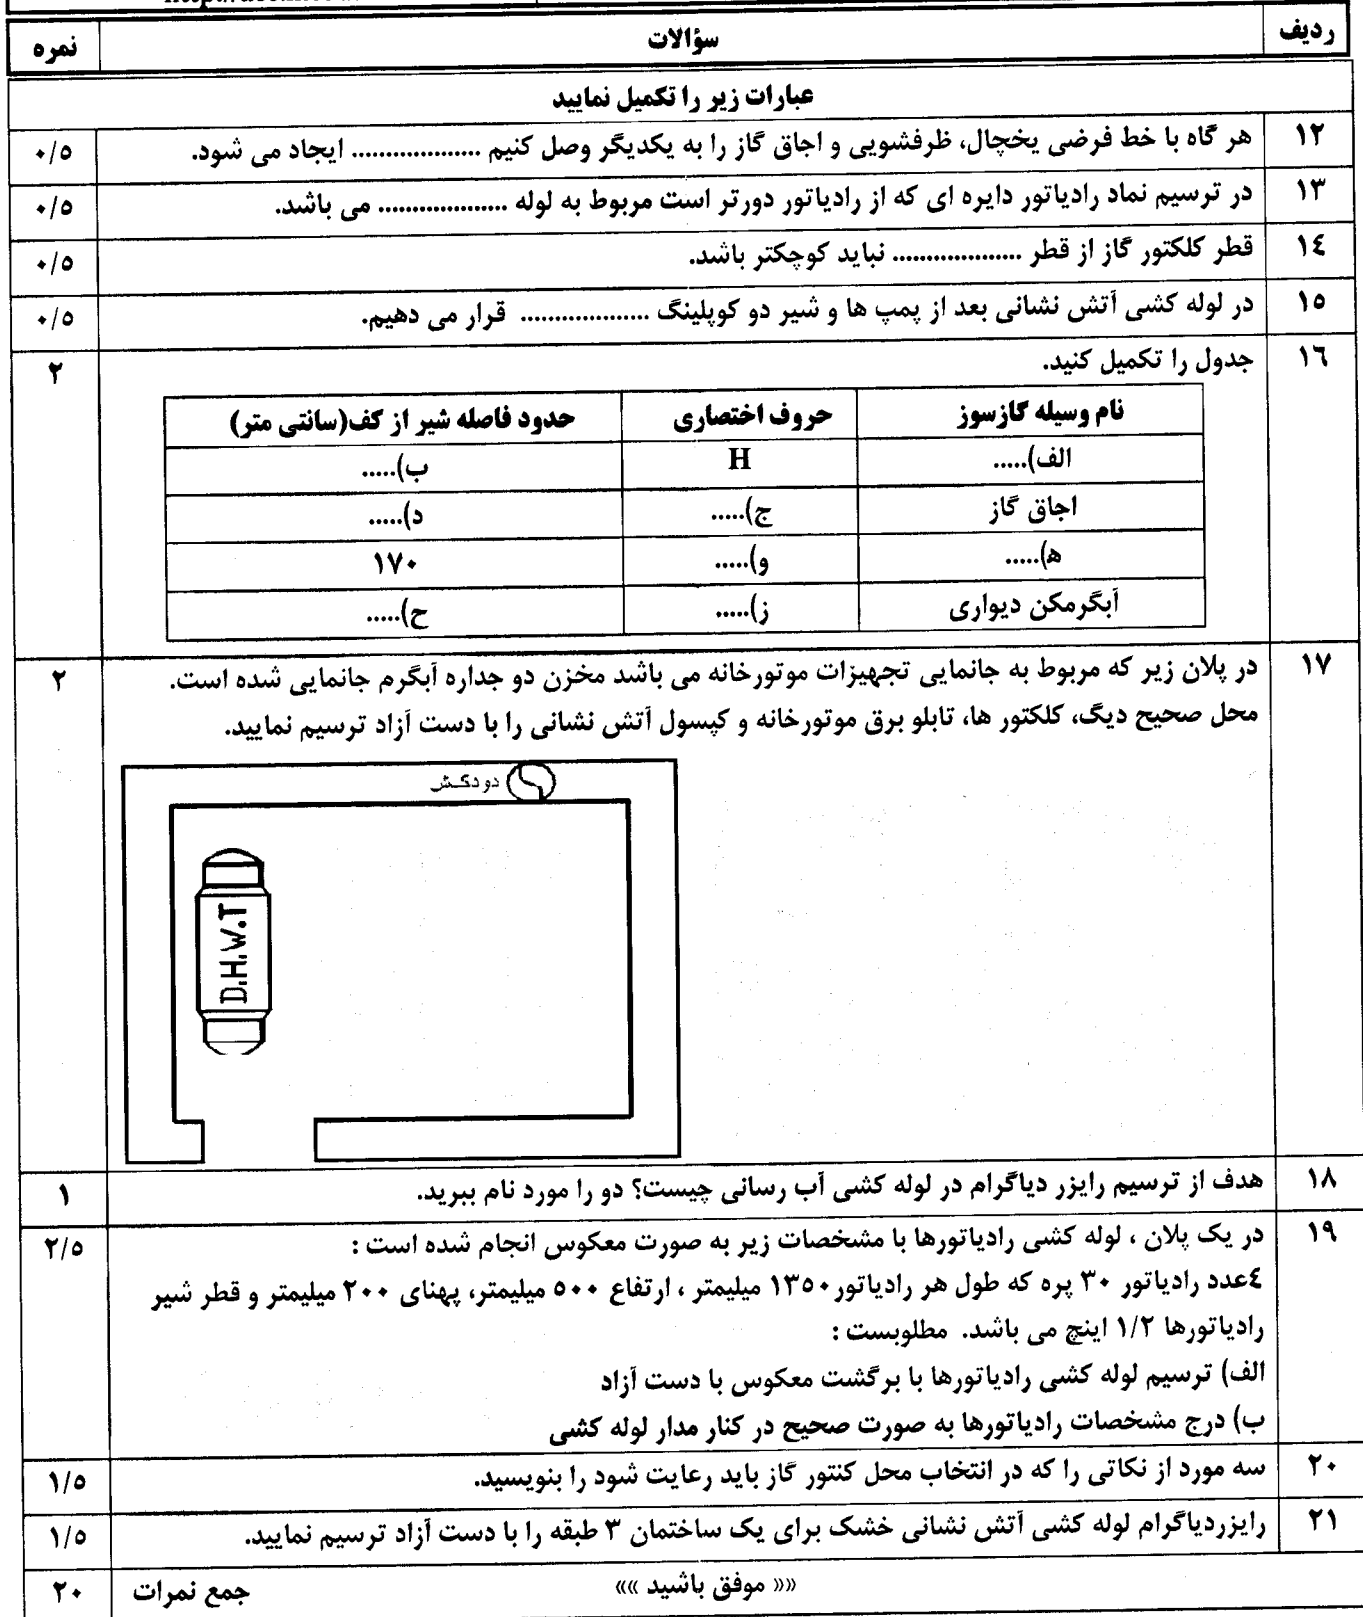 ردیف سؤالات نمره
عبارات زیر را تکمیل نمایید
١٢ هر گاه با خط فرضی یخچال، ظرفشویی و اجاق گاز را به یکدیگر وصل کنیم ................... ایجاد می شود. ٠/٥
١٣ در ترسیم نماد رادیاتور دایره ای که از رادیاتور دورتر است مربوط به لوله ................... می باشد. ٠/٥
١٤ قطر کلکتور گاز از قطر ................... نباید کوچکتر باشد. ٠/٥
١٥ در لوله کشی آتش نشانی بعد از پمپ ها و شیر دو کوپلینگ ................... قرار می دهیم. ٠/٥
١٦ جدول را تکمیل کنید. ٢
نام وسیله گازسوز حروف اختصاری حدود فاصله شیر از کف(سانتی متر)
الف)..... H ب).....
اجاق گاز ج)..... د).....
ه)..... و)..... ١٧٠
آبگرمکن دیواری ز)..... ح).....
١٧ در پلان زیر که مربوط به جانمایی تجهیزات موتورخانه می باشد مخزن دو جداره آبگرم جانمایی شده است. ٢
محل صحیح دیگ، کلکتور ها، تابلو برق موتورخانه و کپسول آتش نشانی را با دست آزاد ترسیم نمایید.
دودکش
D.H.W.T
١٨ هدف از ترسیم رایزر دیاگرام در لوله کشی آب رسانی چیست؟ دو را مورد نام ببرید. ١
١٩ در یک پلان ، لوله کشی رادیاتورها با مشخصات زیر به صورت معکوس انجام شده است : ٢/٥
٤عدد رادیاتور ٣٠ پره که طول هر رادیاتور١٣٥٠ میلیمتر ، ارتفاع ٥٠٠ میلیمتر، پهنای ٢٠٠ میلیمتر و قطر شیر
رادیاتورها ١/٢ اینچ می باشد. مطلوبست :
الف) ترسیم لوله کشی رادیاتورها با برگشت معکوس با دست آزاد
ب) درج مشخصات رادیاتورها به صورت صحیح در کنار مدار لوله کشی
٢٠ سه مورد از نکاتی را که در انتخاب محل کنتور گاز باید رعایت شود را بنویسید. ١/٥
٢١ رایزردیاگرام لوله کشی آتش نشانی خشک برای یک ساختمان ٣ طبقه را با دست آزاد ترسیم نمایید. ١/٥
«« موفق باشید »» جمع نمرات ٢٠